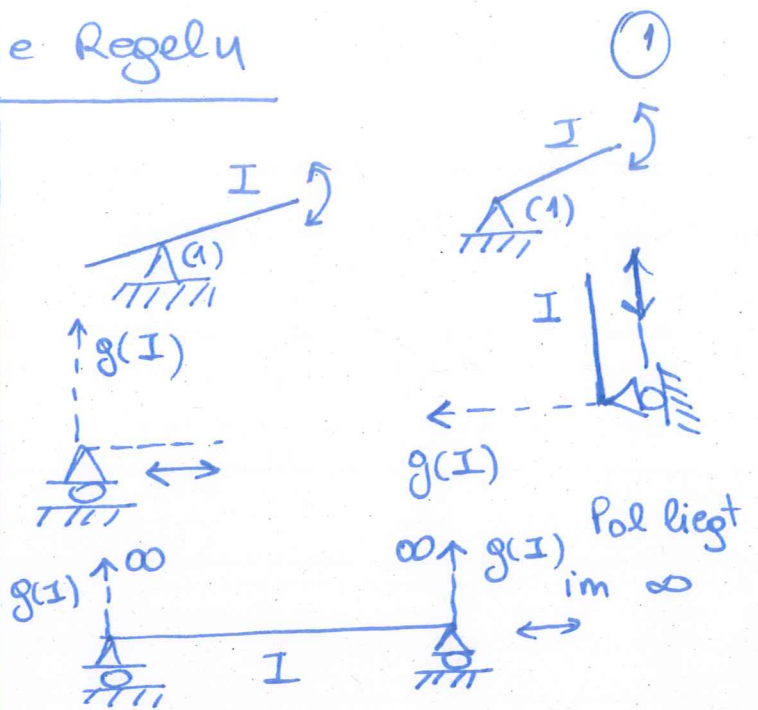 e Regeln
1
I
I
(1)
(1)
I
g(I)
g(I)
g(I) ∞
∞ g(I) Pol liegt
im ∞
I